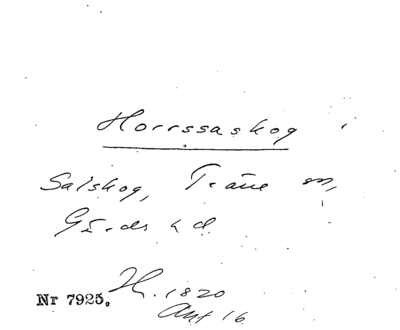 Horrssaskog
Salskog, Träne sn,
Gärds hd
Nr 7925. H. 1820
Akt 16